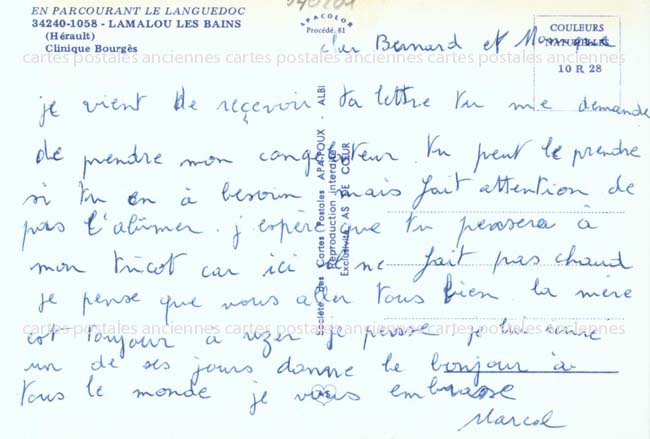 EN PARCOURANT LE LANGUEDOC
34240-1058 - LAMALOU LES BAINS
(Hérault)
Clinique Bourgès
APACOLOR
Procédé 81
COULEURS
NATURELLES
10 R 28
cher Bernard et Monique
cartes postales anciennes cartes postales anciennes cartes postales anciennes
je vient de reçevoir ta lettre tu me demande
de prendre mon congelateur. tu peut le prendre
si tu en à besoin mais fait attention de
pas l'abîmer. j'espère que tu pensera à
mon tricot car ici il ne fait pas chaud
je pense que vous aler tous bien la mère
cartes postales anciennes cartes postales anciennes cartes postales anciennes
est toujour a je pense je lui
un de ses jours donne le bonjour à
tous le monde je vous embrasse
Marcel
Société des Cartes Postales APA-POUX - ALBI
Reproduction interdite
Exclusivité AS DE CŒUR